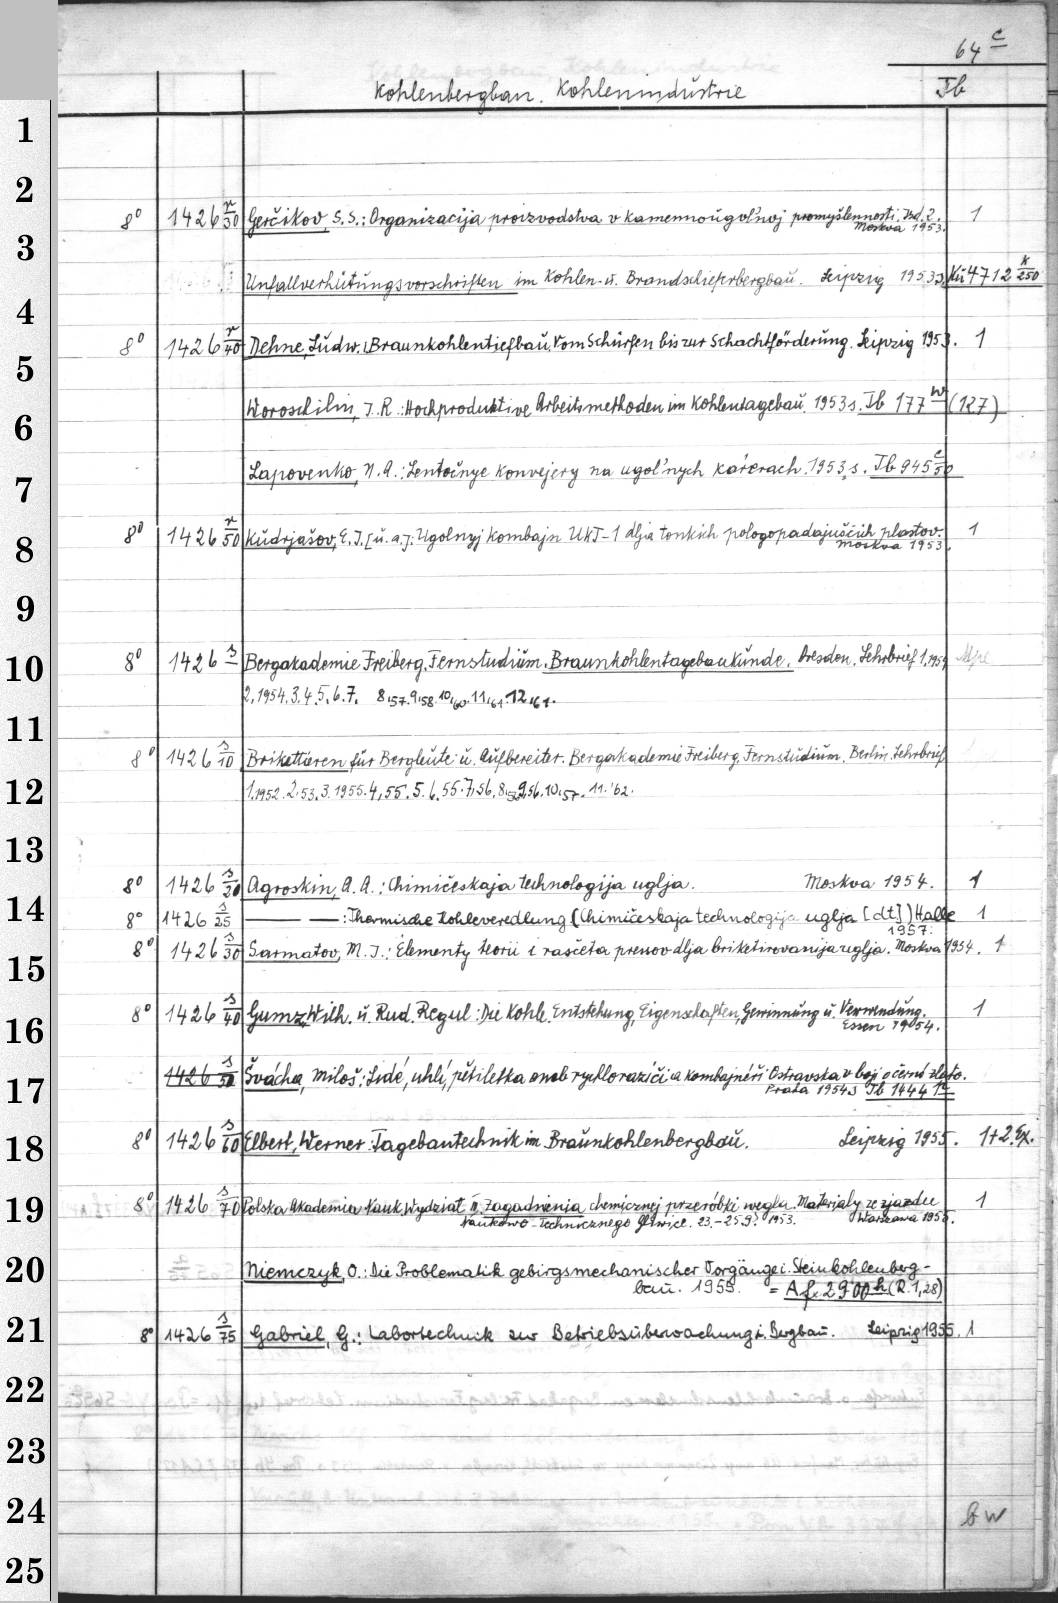 64 c
Kohlenbergbau. Kohlenindustrie
Tb
1
2
8° 1426 r/30 Gerčikov, S. S.: Organizacija proizvodstva v kamennougol'noj promyšlennosti. Izd. 2. 1
Moskva 1953.
3
Unfallverhütungsvorschriften im Kohlen- u. Brandschieferbergbau. Leipzig 1953 s. Kü 4712 k/250
4
8° 1426 r/40 Dehne, Ludw.: Braunkohlentiefbau. Vom Schürfen bis zur Schachtförderung. Leipzig 1953. 1
5
Woroschilin, J. R.: Hochproduktive Arbeitsmethoden im Kohlentagebau. 1953 s. Tb 177 w (127)
6
Lapovenko, N. A.: Lentočnye konvejery na ugol'nych kar'erach. 1953 s. Tb 945 c/50
7
8° 1426 r/50 Kudrjašov, E. I. [u. a.]: Ugolnyj kombajn UKT-1 dlja tonkich pologopadajuščich plastov. 1
Moskva 1953.
8
9
8° 1426 s Bergakademie Freiberg, Fernstudium. Braunkohlentagebaukunde. Dresden. Lehrbrief 1,1954
10
2,1954. 3. 4. 5. 6. 7. 8,57. 9,58. 10,60. 11,61. 12,61.
11
8° 1426 s/10 Brikettieren für Bergleute u. Aufbereiter. Bergakademie Freiberg, Fernstudium. Berlin. Lehrbrief
12
1,1952. 2,53. 3.1955. 4,55. 5. 6,55. 7,56. 8, 9,56. 10,57. 11.'62.
13
8° 1426 s/20 Agroskin, A. A.: Chimičeskaja technologija uglja. Moskva 1954. 1
14
8° 1426 s/25 —— —: Thermische Kohleveredlung (Chimičeskaja technologija uglja [dt.]) Halle 1
1957.
8° 1426 s/30 Sarmatov, M. I.: Elementy teorii i rasčeta pressov dlja briketirovanija uglja. Moskva 1954. 1
15
8° 1426 s/40 Gumz, Wilh. u. Rud. Regul: Die Kohle. Entstehung, Eigenschaften, Gewinnung u. Verwendung. 1
Essen 1954.
16
1426 s/50 Švácha, Miloš: Lidé, uhlí, pětiletka aneb rychloraziči a kombajnéři Ostravska v boji o černé zlato.
17
Praha 1954 s Tb 1444 1a
8° 1426 s/60 Elbert, Werner: Tagebautechnik im Braunkohlenbergbau. Leipzig 1955. 1+2.Ex.
18
8° 1426 s/70 Polska Akademia Nauk, Wydział 4. Zagadnienia chemicznej przeróbki węgla. Materiały ze zjazdu 1
19
naukowo-technicznego Gliwice. 23.-25.9. 1953. Warszawa 1955.
20
Niemczyk, O.: Die Problematik gebirgsmechanischer Vorgänge i. Steinkohlenberg-
bau. 1955. = Af. 2900 h (R. 1,28)
21
8° 1426 s/75 Gabriel, G.: Labortechnik zur Betriebsüberwachung i. Bergbau. Leipzig 1955. 1
22
23
24
bw
25